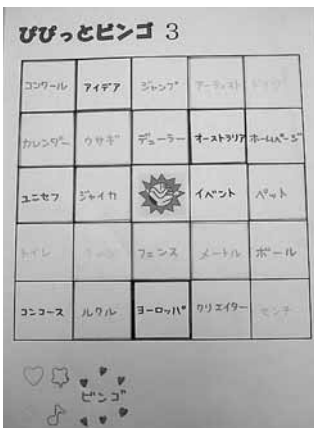 ぴぴっとビンゴ 3
コンクール アイデア ジャンプ アーティスト
カレンダー ウサギ デューラー オーストラリア ホームページ
ユニセフ ジャイカ イベント ペット
トイレ フェンス メートル ボール
コンコース ルクル ヨーロッパ クリエイター センチ
ビンゴ